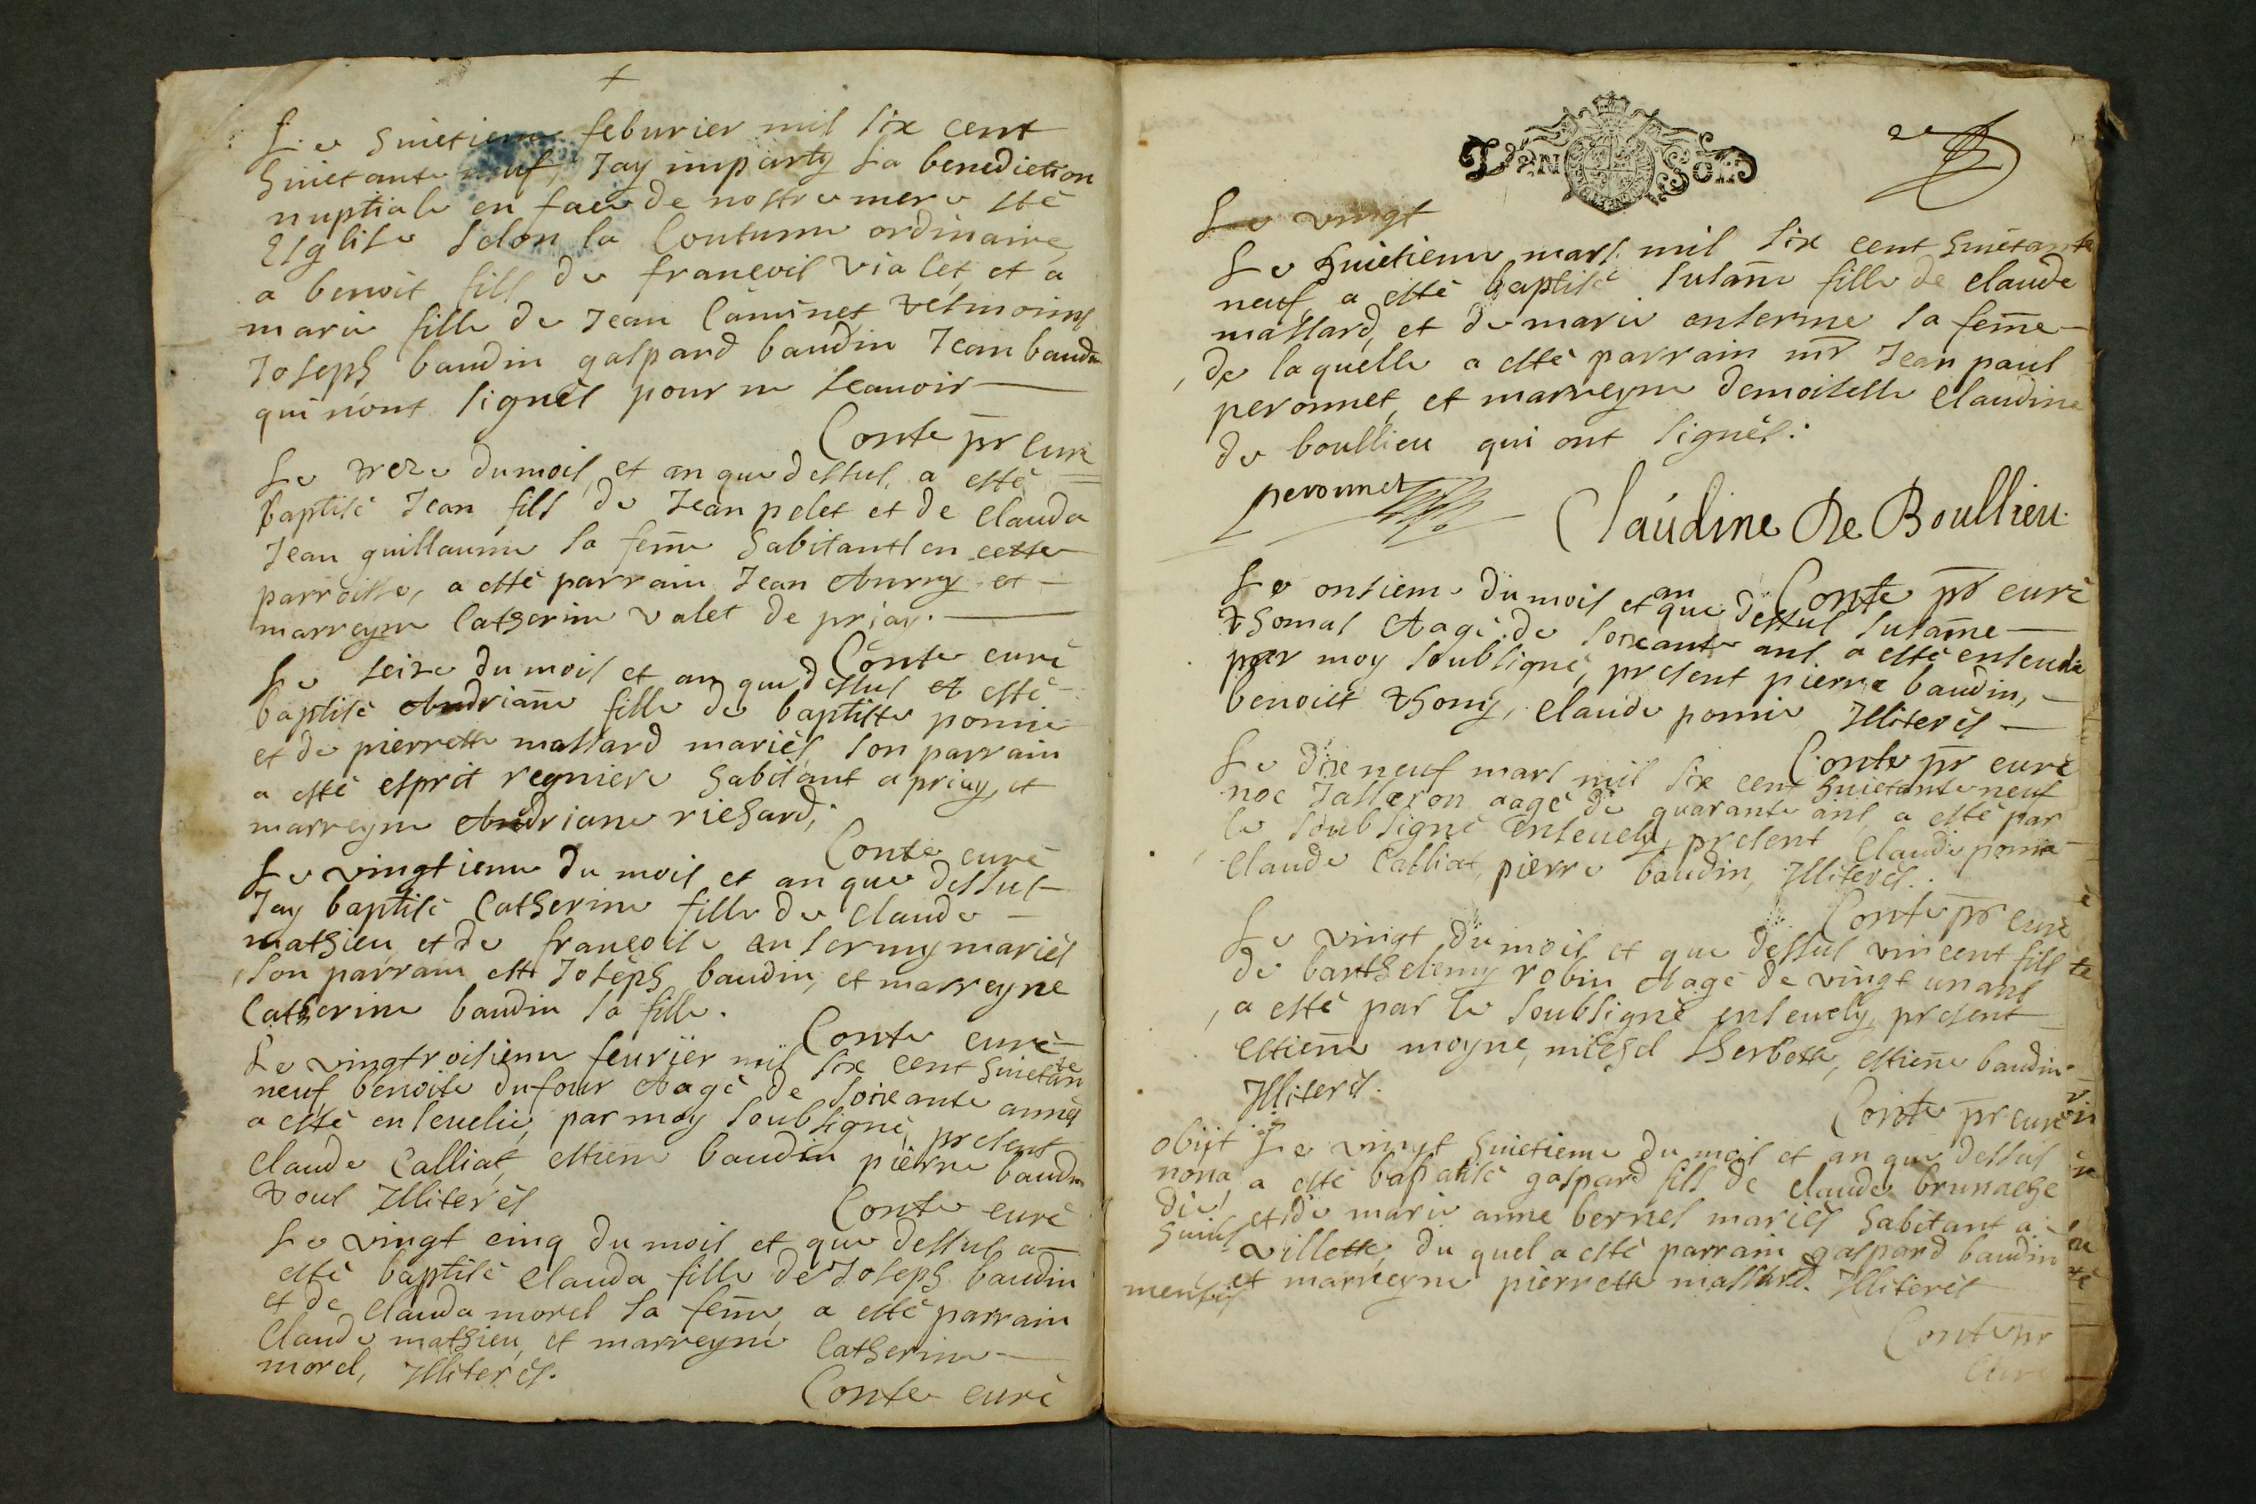 +
Le huictieme feburier mil six cent
huictante neuf, Jay imparty La benediction
nuptiale en face de nostre mere ste
Esglise selon la Coutume ordinaire
a benoit fils de francois vialet, et a
marie fille de Jean Caminet tesmoins
Joseph baudin gaspard baudin Jean baudin
qui n'ont signès pour ne scauoir
Conte pr curé
Le treze du mois, et an que dessus, a esté
baptisé Jean fils de Jean pelet et de Clauda
Jean guillaume sa feme habitants en cette
parroisse, a esté parrain Jean et
marreyne Catherine valet de priay.
Conte curé
Le seize du mois et an que dessus a esté
baptisé Andriane fille de baptiste pomie
et de pierrette massard mariès, son parrain
a esté esprit regniere habitant a priay, et
marreyne Andriane richard,
Conte curé
Le vingtieme du mois et an que dessus
Jay baptisé Catherine fille de Claude
mathieu, et de francoise anselmy mariès
son parrain est Joseph baudin, et marreyne
Catherine baudin sa fille.
Conte curé
Le vingtroisieme feurier mil six cent huictante
neuf benoite dufour Aagé de soixante annés
a esté enseuelie, par moy soubsigné, present
Claude Calliat, estiene baudin pierre baudin
tous Illiterès
Conte curé
Le vingt cinq du mois et que dessus a
esté baptisé Clauda fille de Joseph baudin
et de Clauda morel sa feme, a esté parrain
Claude mathieu, et marreyne Catherine
morel, Illiterés.
Conte curé
DEN SOLS
Le vingt
Le huictieme mars mil six cent huictante
neuf, a esté baptisé susane fille de Claude
massard, et de marie anselme sa feme
de laquelle a esté parrain mr Jean paul
peronnet, et marreyne demoiselle Claudine
de boullieu qui ont signès.
peronnet
Claúdine De Boullieu
Conte pr curé
Le onsieme du mois et an que dessus susanne
thomas Aagé de soixante ans. a esté enseuelie
par moy soubsigné, present pierre baudin,
benoict thomy, Claude pomie Illiterès
Conte pr curé
Le dixneuf mars mil six cent huictante neuf
noe Jasseron aagé de quarante ans, a esté par
le soubsigné enseuely, present Claude pomie
Claude Calliat, pierre baudin, Illiterés.
Conte pr curé
Le vingt du mois et que dessus vincent fils
de barthelemy robin Aagé de vingt un ans
a esté par le soubsigné enseuely, present
estiene moyne, michel therbette, estiene baudin
Illiterés.
Conte pr curé
obijt Le vingt huictieme du mois et an que dessus
nona a esté bapatisé gaspard fils de claude brunache
die et de marie anne bernel mariès habitant a
huius villette, du quel a esté parrain gaspard baudin
mensis et marreyne pierrette massard. Illiterés
Conte pr
Curé